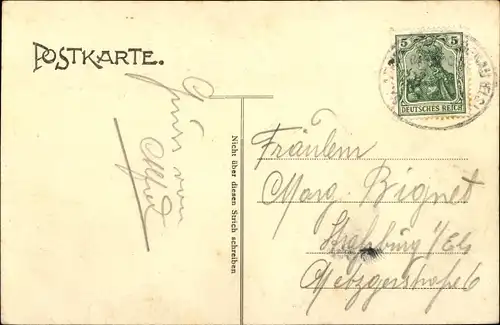 POSTKARTE.
Gruss von
Alfred
Nicht über diesen Strich schreiben
5 5
DEUTSCHES REICH
Fräulein
Marg. Bignet
Straßburg i/Els
Metzgerstraße 6